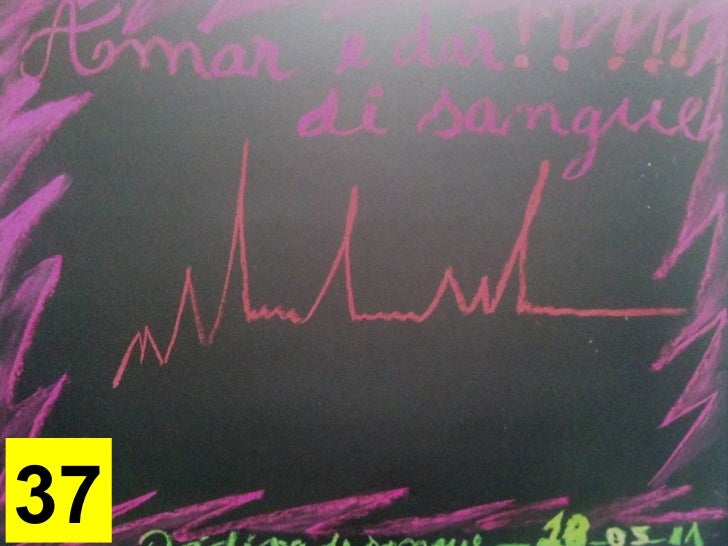 Amar é dar!!!!!
di sangue
37
de sangue - 18-05-11